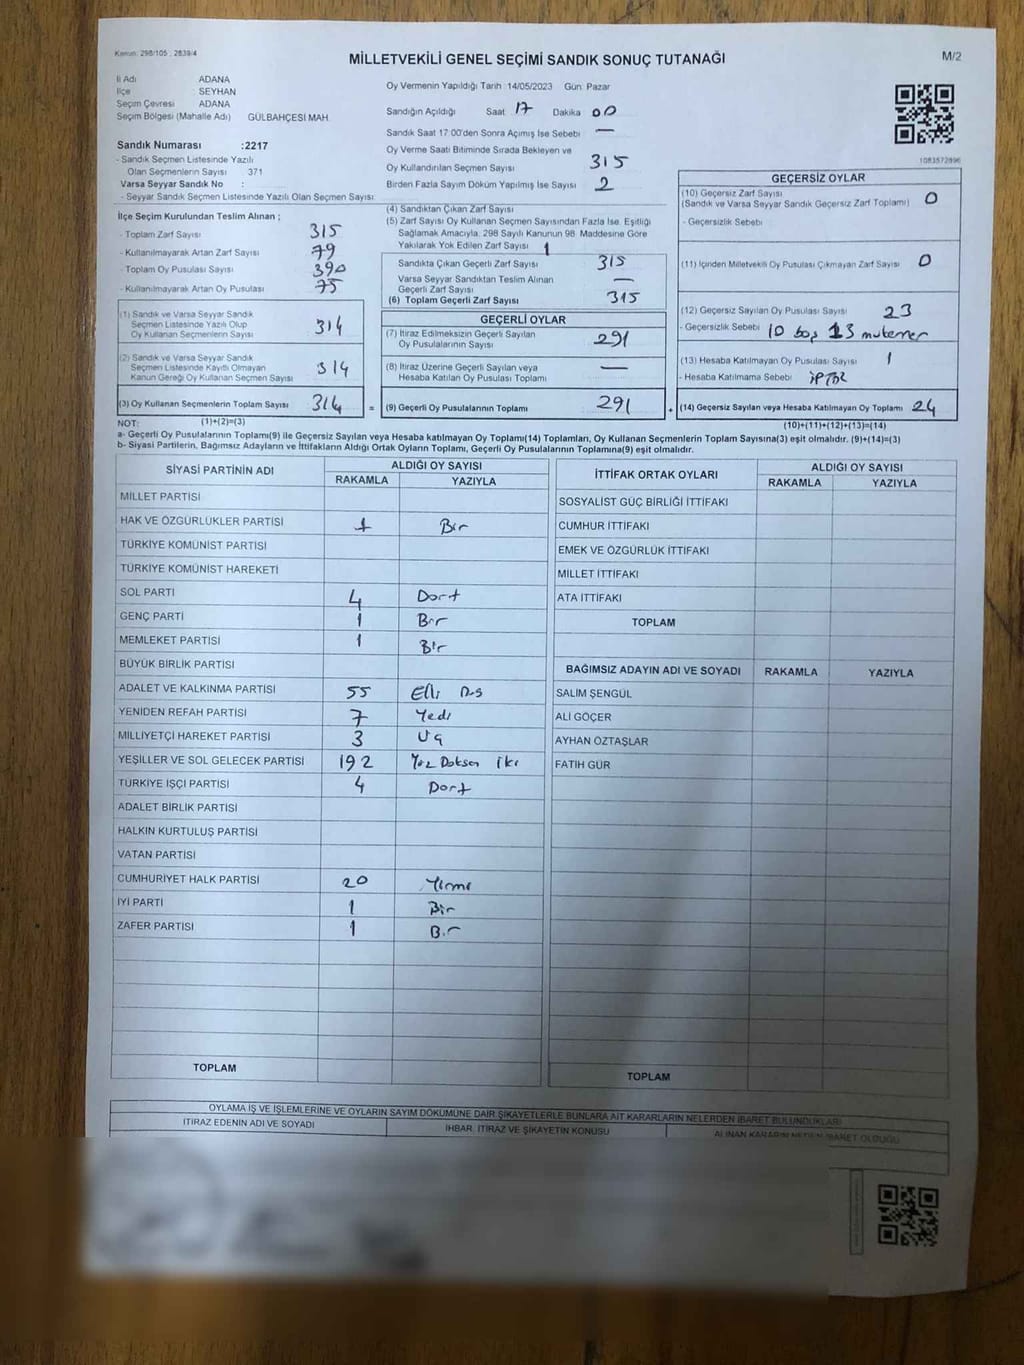 Kanun: 298/105 , 2839/4
MİLLETVEKİLİ GENEL SEÇİMİ SANDIK SONUÇ TUTANAĞI
M/2
İl Adı ADANA
İlçe SEYHAN
Seçim Çevresi ADANA
Seçim Bölgesi (Mahalle Adı) GÜLBAHÇESİ MAH.
Sandık Numarası :2217
- Sandık Seçmen Listesinde Yazılı
Olan Seçmenlerin Sayısı 371
Varsa Seyyar Sandık No :
- Seyyar Sandık Seçmen Listesinde Yazılı Olan Seçmen Sayısı:
Oy Vermenin Yapıldığı Tarih :14/05/2023 Gün: Pazar
Sandığın Açıldığı Saat 17 Dakika 00
Sandık Saat 17:00'den Sonra Açılmış İse Sebebi —
Oy Verme Saati Bitiminde Sırada Bekleyen ve
Oy Kullandırılan Seçmen Sayısı 315
Birden Fazla Sayım Döküm Yapılmış İse Sayısı 2
1083572896
İlçe Seçim Kurulundan Teslim Alınan ;
- Toplam Zarf Sayısı 315
- Kullanılmayarak Artan Zarf Sayısı 79
- Toplam Oy Pusulası Sayısı 390
- Kullanılmayarak Artan Oy Pusulası 75
(1) Sandık ve Varsa Seyyar Sandık
Seçmen Listesinde Yazılı Olup
Oy Kullanan Seçmenlerin Sayısı 314
(2) Sandık ve Varsa Seyyar Sandık
Seçmen Listesinde Kayıtlı Olmayan
Kanun Gereği Oy Kullanan Seçmen Sayısı 314
(3) Oy Kullanan Seçmenlerin Toplam Sayısı 314 =
(4) Sandıktan Çıkan Zarf Sayısı
(5) Zarf Sayısı Oy Kullanan Seçmen Sayısından Fazla İse, Eşitliği
Sağlamak Amacıyla, 298 Sayılı Kanunun 98. Maddesine Göre
Yakılarak Yok Edilen Zarf Sayısı 1
Sandıkta Çıkan Geçerli Zarf Sayısı 315
Varsa Seyyar Sandıktan Teslim Alınan
Geçerli Zarf Sayısı —
(6) Toplam Geçerli Zarf Sayısı 315
GEÇERLİ OYLAR
(7) İtiraz Edilmeksizin Geçerli Sayılan
Oy Pusulalarının Sayısı 291
(8) İtiraz Üzerine Geçerli Sayılan veya
Hesaba Katılan Oy Pusulası Toplamı —
(9) Geçerli Oy Pusulalarının Toplamı 291 +
GEÇERSİZ OYLAR
(10) Geçersiz Zarf Sayısı
(Sandık ve Varsa Seyyar Sandık Geçersiz Zarf Toplamı) 0
- Geçersizlik Sebebi
(11) İçinden Milletvekili Oy Pusulası Çıkmayan Zarf Sayısı 0
(12) Geçersiz Sayılan Oy Pusulası Sayısı 23
- Geçersizlik Sebebi 10 boş 13 mükerrer
(13) Hesaba Katılmayan Oy Pusulası Sayısı 1
- Hesaba Katılmama Sebebi iptal
(14) Geçersiz Sayılan veya Hesaba Katılmayan Oy Toplamı 24
NOT: (1)+(2)=(3)
(10)+(11)+(12)+(13)=(14)
a- Geçerli Oy Pusulalarının Toplamı(9) ile Geçersiz Sayılan veya Hesaba katılmayan Oy Toplamı(14) Toplamları, Oy Kullanan Seçmenlerin Toplam Sayısına(3) eşit olmalıdır. (9)+(14)=(3)
b- Siyasi Partilerin, Bağımsız Adayların ve İttifakların Aldığı Ortak Oyların Toplamı, Geçerli Oy Pusulalarının Toplamına(9) eşit olmalıdır.
SİYASİ PARTİNİN ADI ALDIĞI OY SAYISI
RAKAMLA YAZIYLA
MİLLET PARTİSİ
HAK VE ÖZGÜRLÜKLER PARTİSİ 1 Bir
TÜRKİYE KOMÜNİST PARTİSİ
TÜRKİYE KOMÜNİST HAREKETİ
SOL PARTİ 4 Dört
GENÇ PARTİ 1 Bir
MEMLEKET PARTİSİ 1 Bir
BÜYÜK BİRLİK PARTİSİ
ADALET VE KALKINMA PARTİSİ 55 Elli Beş
YENİDEN REFAH PARTİSİ 7 Yedi
MİLLİYETÇİ HAREKET PARTİSİ 3 Üç
YEŞİLLER VE SOL GELECEK PARTİSİ 192 Yüz Doksan iki
TÜRKİYE İŞÇİ PARTİSİ 4 Dört
ADALET BİRLİK PARTİSİ
HALKIN KURTULUŞ PARTİSİ
VATAN PARTİSİ
CUMHURİYET HALK PARTİSİ 20 Yirmi
İYİ PARTİ 1 Bir
ZAFER PARTİSİ 1 Bir
TOPLAM
İTTİFAK ORTAK OYLARI ALDIĞI OY SAYISI
RAKAMLA YAZIYLA
SOSYALİST GÜÇ BİRLİĞİ İTTİFAKI
CUMHUR İTTİFAKI
EMEK VE ÖZGÜRLÜK İTTİFAKI
MİLLET İTTİFAKI
ATA İTTİFAKI
TOPLAM
BAĞIMSIZ ADAYIN ADI VE SOYADI RAKAMLA YAZIYLA
SALİM ŞENGÜL
ALİ GÖÇER
AYHAN ÖZTAŞLAR
FATİH GÜR
TOPLAM
OYLAMA İŞ VE İŞLEMLERİNE VE OYLARIN SAYIM DÖKÜMÜNE DAİR ŞİKAYETLERLE BUNLARA AİT KARARLARIN NELERDEN İBARET BULUNDUKLARI
İTİRAZ EDENİN ADI VE SOYADI İHBAR, İTİRAZ VE ŞİKAYETİN KONUSU ALINAN KARARIN NEDEN İBARET OLDUĞU